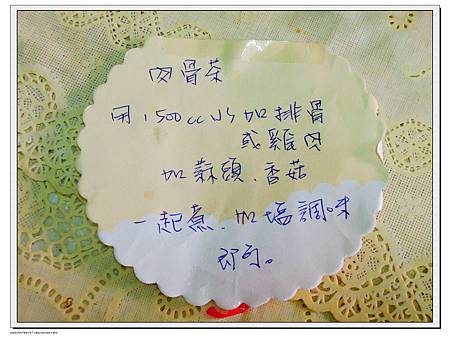 肉骨茶
用1500cc水加排骨
或雞肉
加蒜頭、香菇
一起煮、加塩調味
即可。